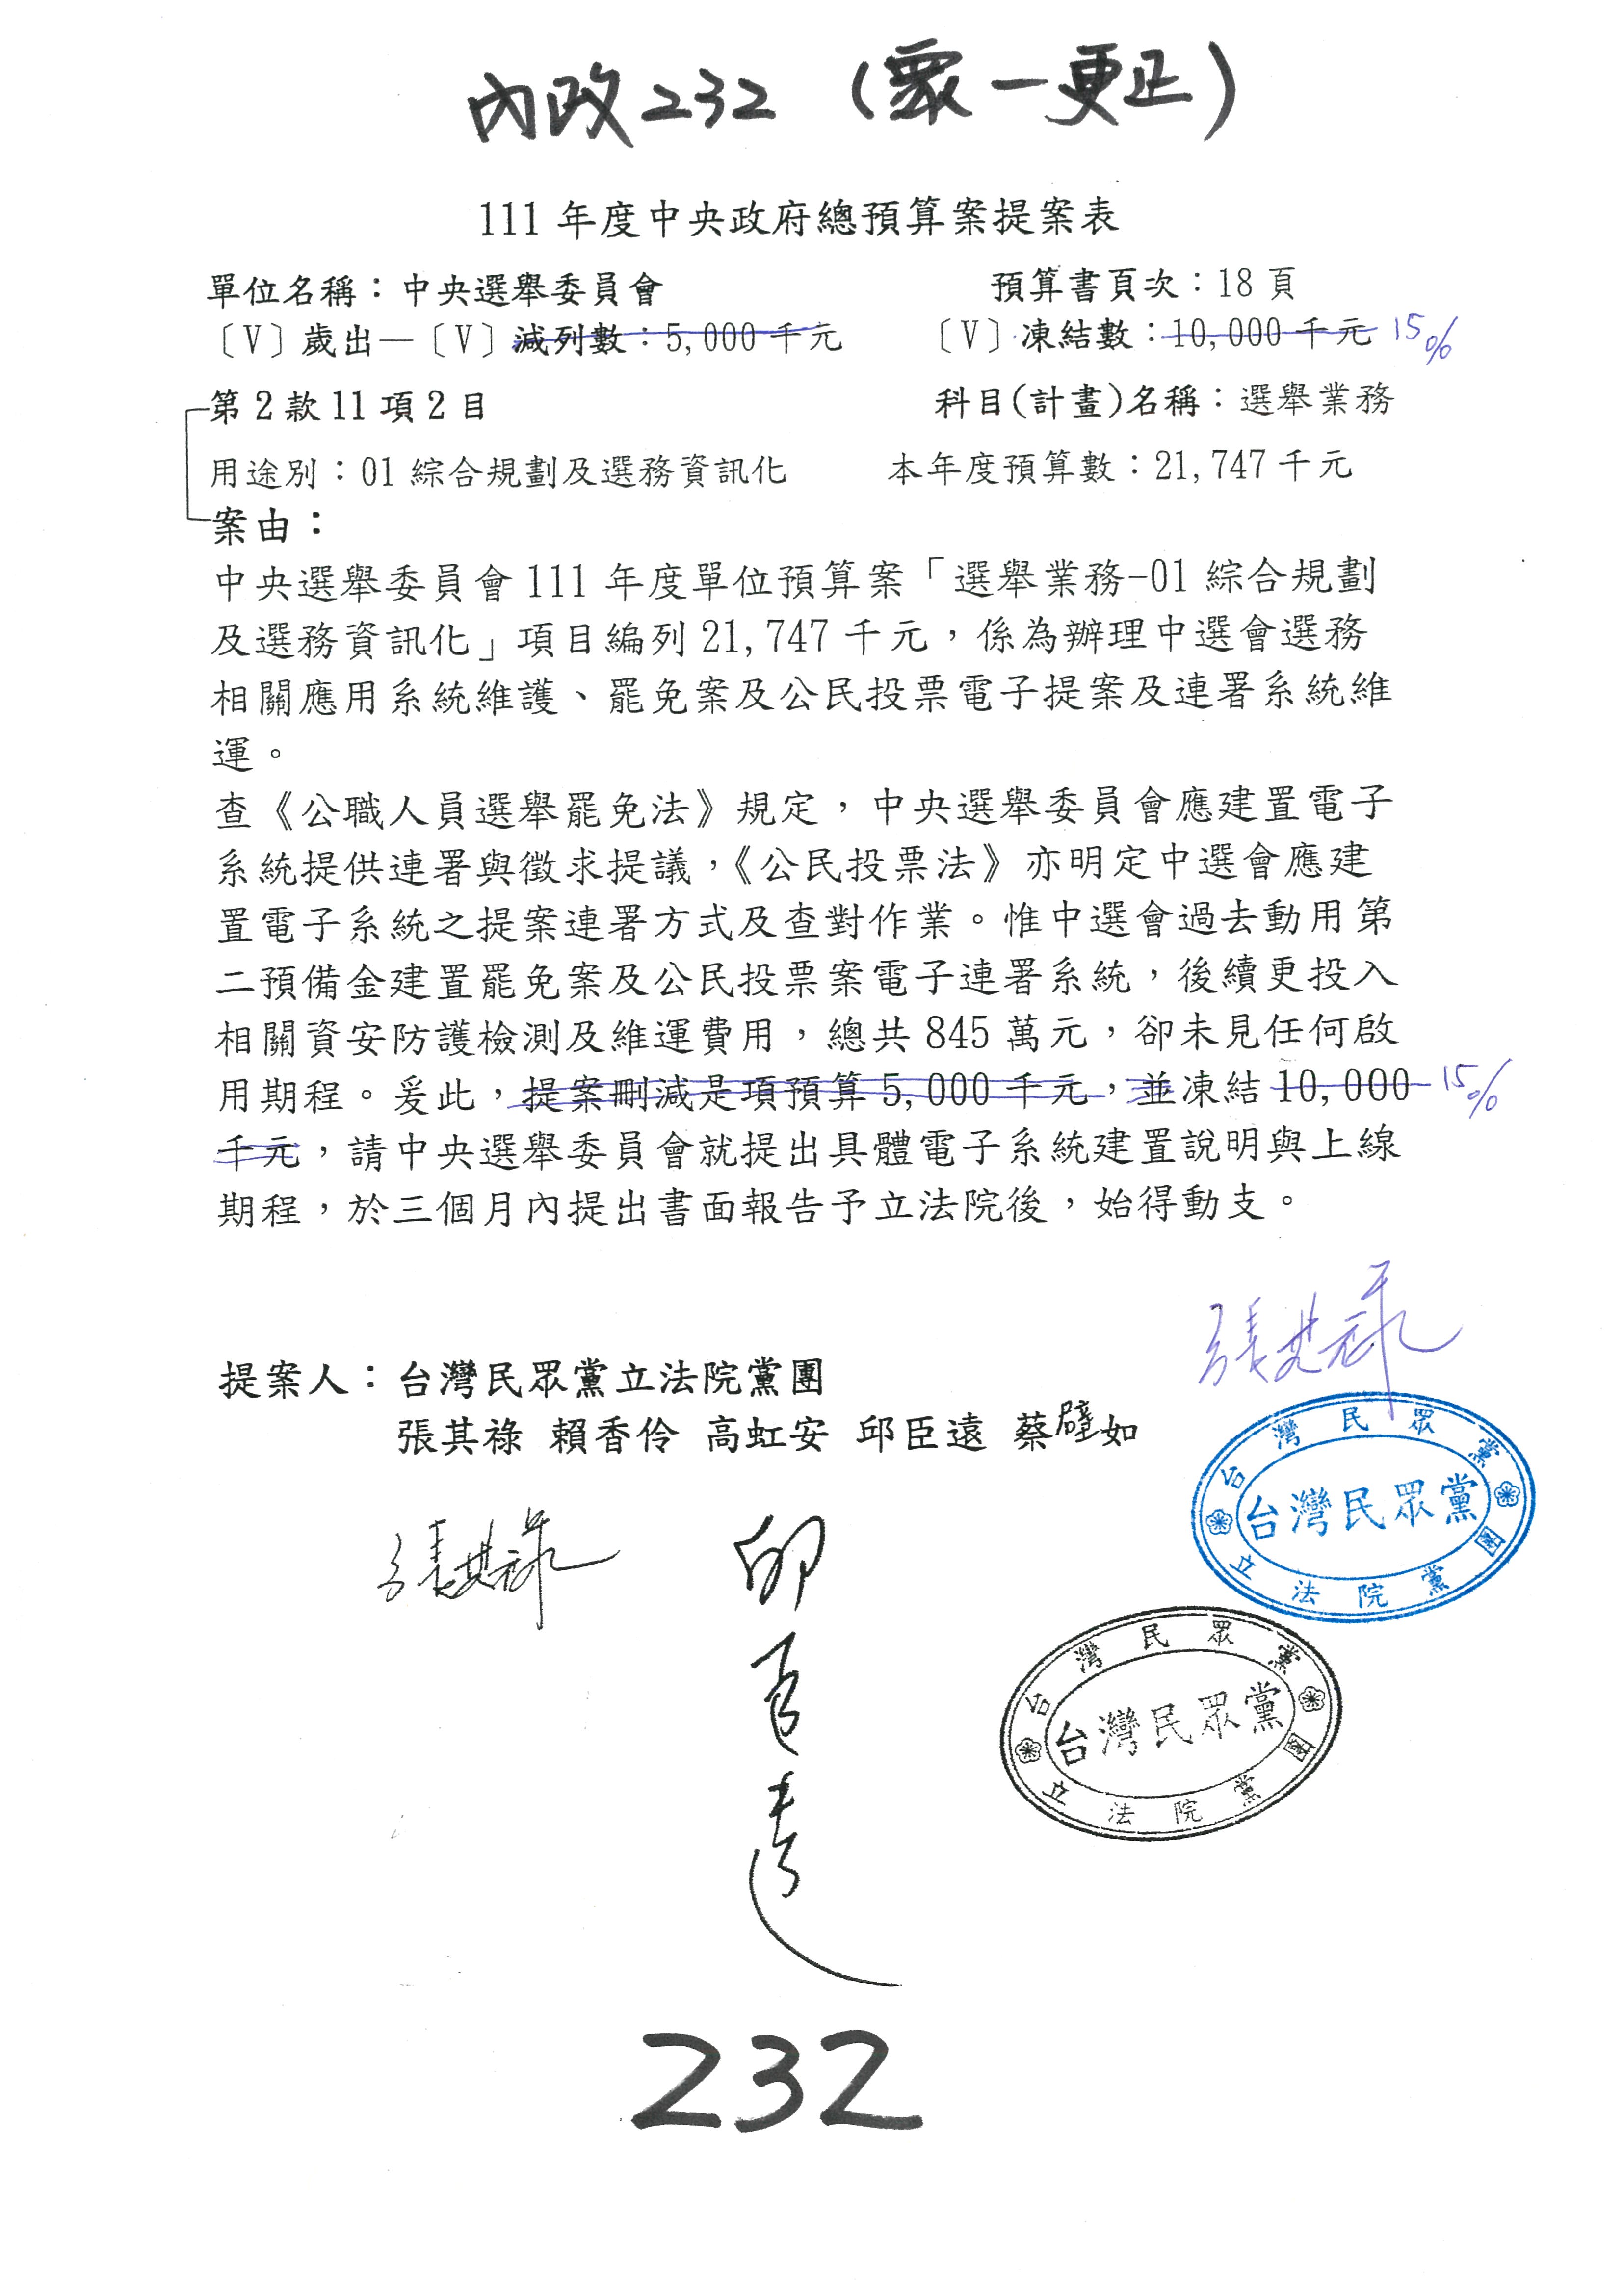 內政232（眾一更正）
111年度中央政府總預算案提案表
單位名稱：中央選舉委員會　預算書頁次：18頁
〔V〕歲出—〔V〕減列數：5,000千元　〔V〕凍結數：10,000千元 15%
第2款11項2目　科目(計畫)名稱：選舉業務
用途別：01綜合規劃及選務資訊化　本年度預算數：21,747千元
案由：
中央選舉委員會111年度單位預算案「選舉業務-01綜合規劃
及選務資訊化」項目編列21,747千元，係為辦理中選會選務
相關應用系統維護、罷免案及公民投票電子提案及連署系統維
運。
查《公職人員選舉罷免法》規定，中央選舉委員會應建置電子
系統提供連署與徵求提議，《公民投票法》亦明定中選會應建
置電子系統之提案連署方式及查對作業。惟中選會過去動用第
二預備金建置罷免案及公民投票案電子連署系統，後續更投入
相關資安防護檢測及維運費用，總共845萬元，卻未見任何啟
用期程。爰此，提案刪減是項預算5,000千元，並凍結10,000 15%
千元，請中央選舉委員會就提出具體電子系統建置說明與上線
期程，於三個月內提出書面報告予立法院後，始得動支。
張其祿
提案人：台灣民眾黨立法院黨團
張其祿 賴香伶 高虹安 邱臣遠 蔡壁如
台灣民眾黨立法院黨團
台灣民眾黨
張其祿
邱臣遠
台灣民眾黨立法院黨團
台灣民眾黨
232